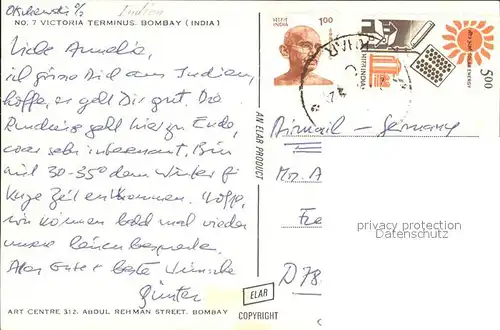 Indien
NO. 7 VICTORIA TERMINUS. BOMBAY (INDIA)
Liebe Amalia,
ich grüsse Dich aus Indien,
hoffe, es geht Dir gut. Die
Rundreise geht hier zu Ende,
war sehr interessant. Bin
mit 30-35° dem Winter für
kurze Zeit entkommen. Hoffe,
wir können bald mal wieder
unsere
Alles Gute + beste Wünsche
Günter
ART CENTRE 312, ABDUL REHMAN STREET. BOMBAY
AN ELAR PRODUCT
ELAR
COPYRIGHT
भारत INDIA 1.00
भारत INDIA
500
Airmail - Germany
D 78
privacy protection
Datenschutz